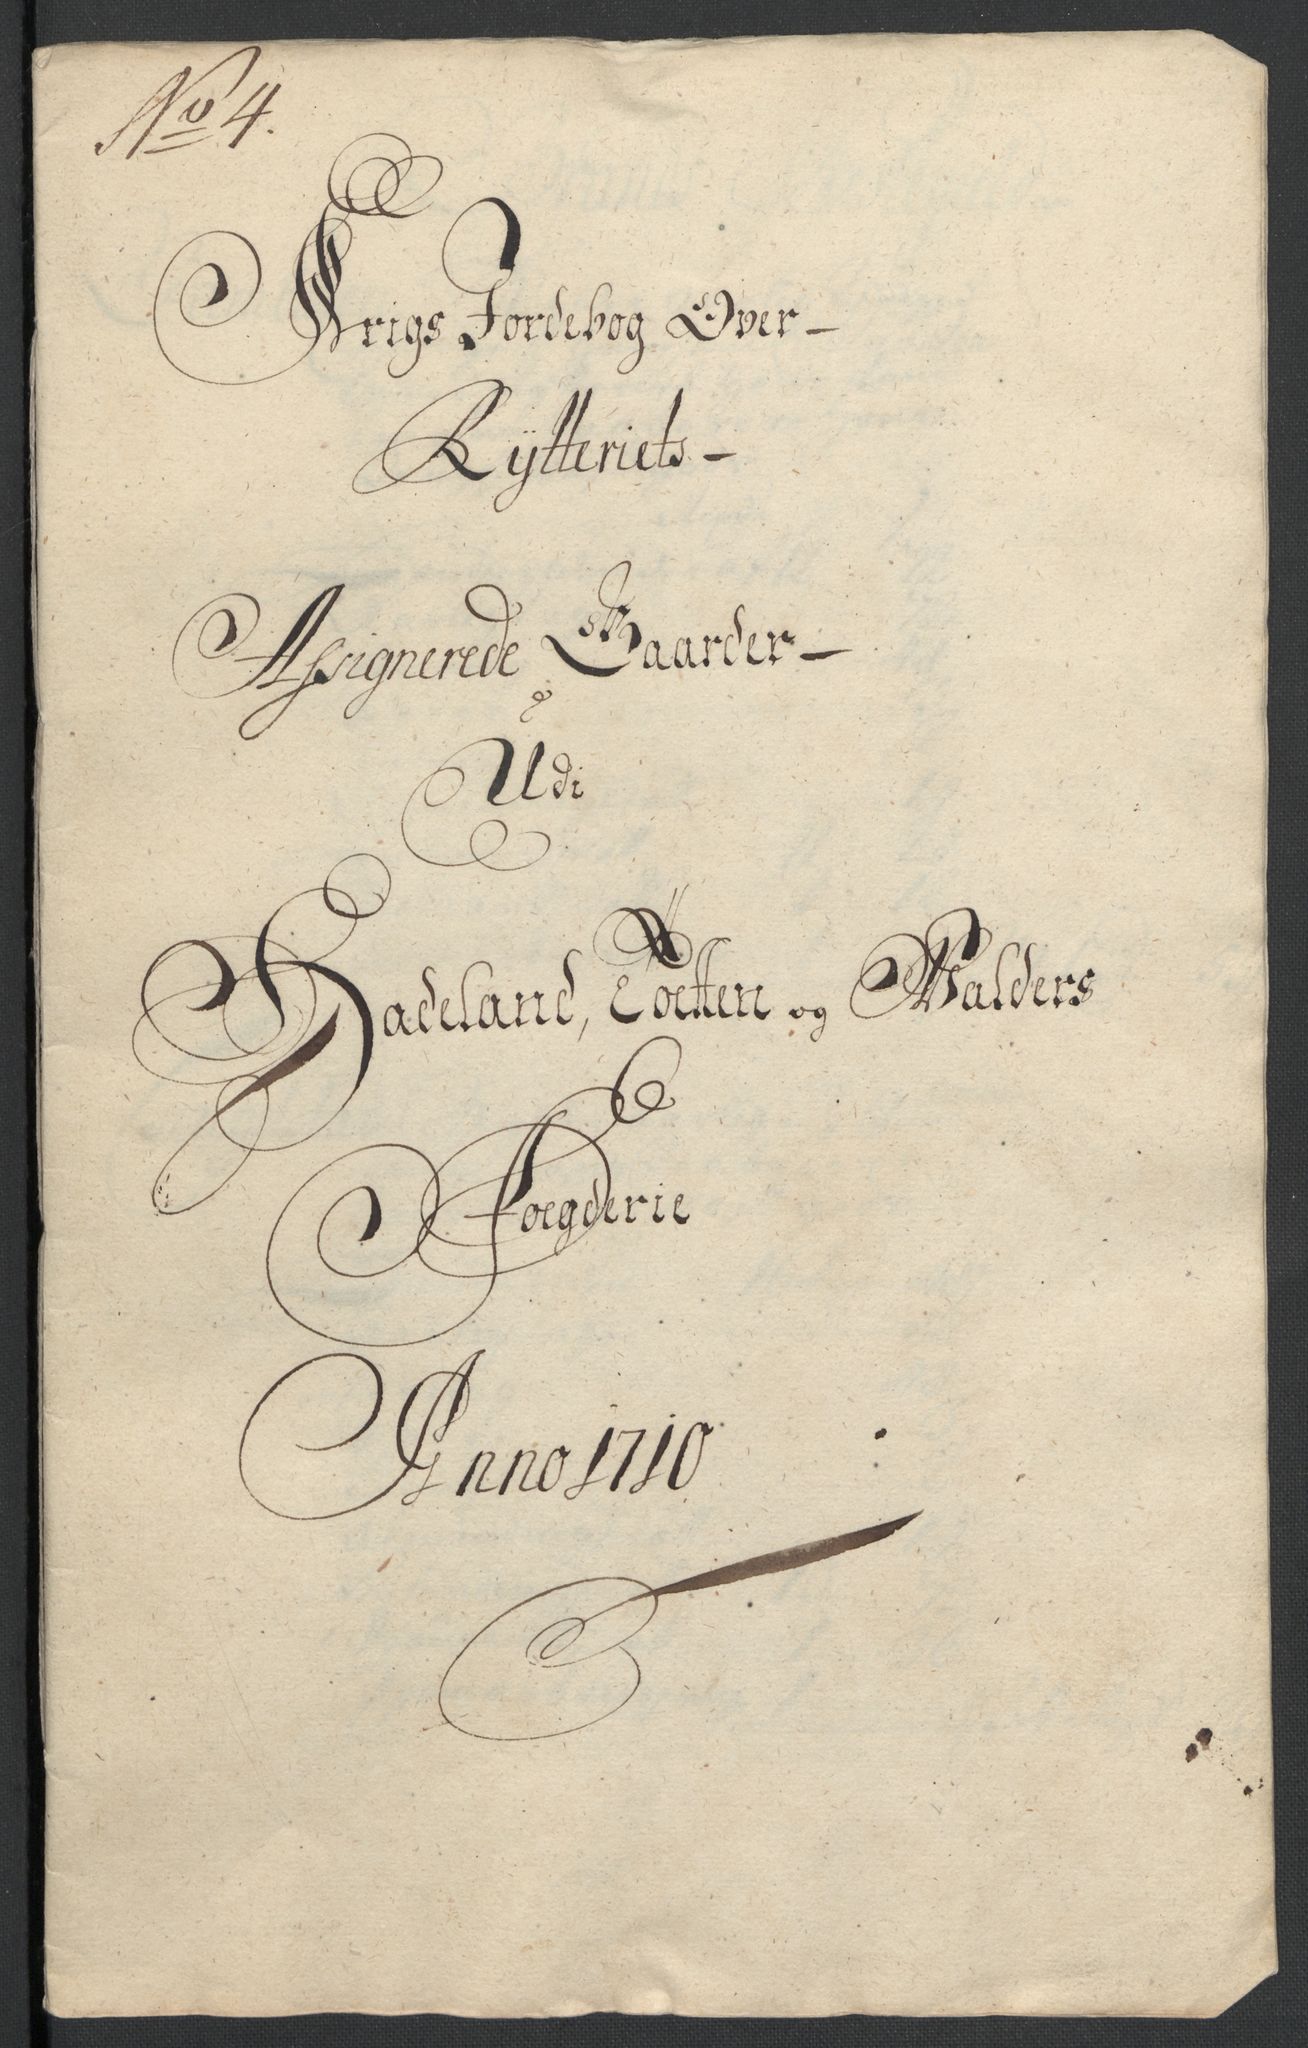 No 4.
Krigs Jordebog Over
Rÿtteriets
Assignerede Gaarder
Udi
Hadeland, Toetten og Walders
Foegderie
Anno 1710